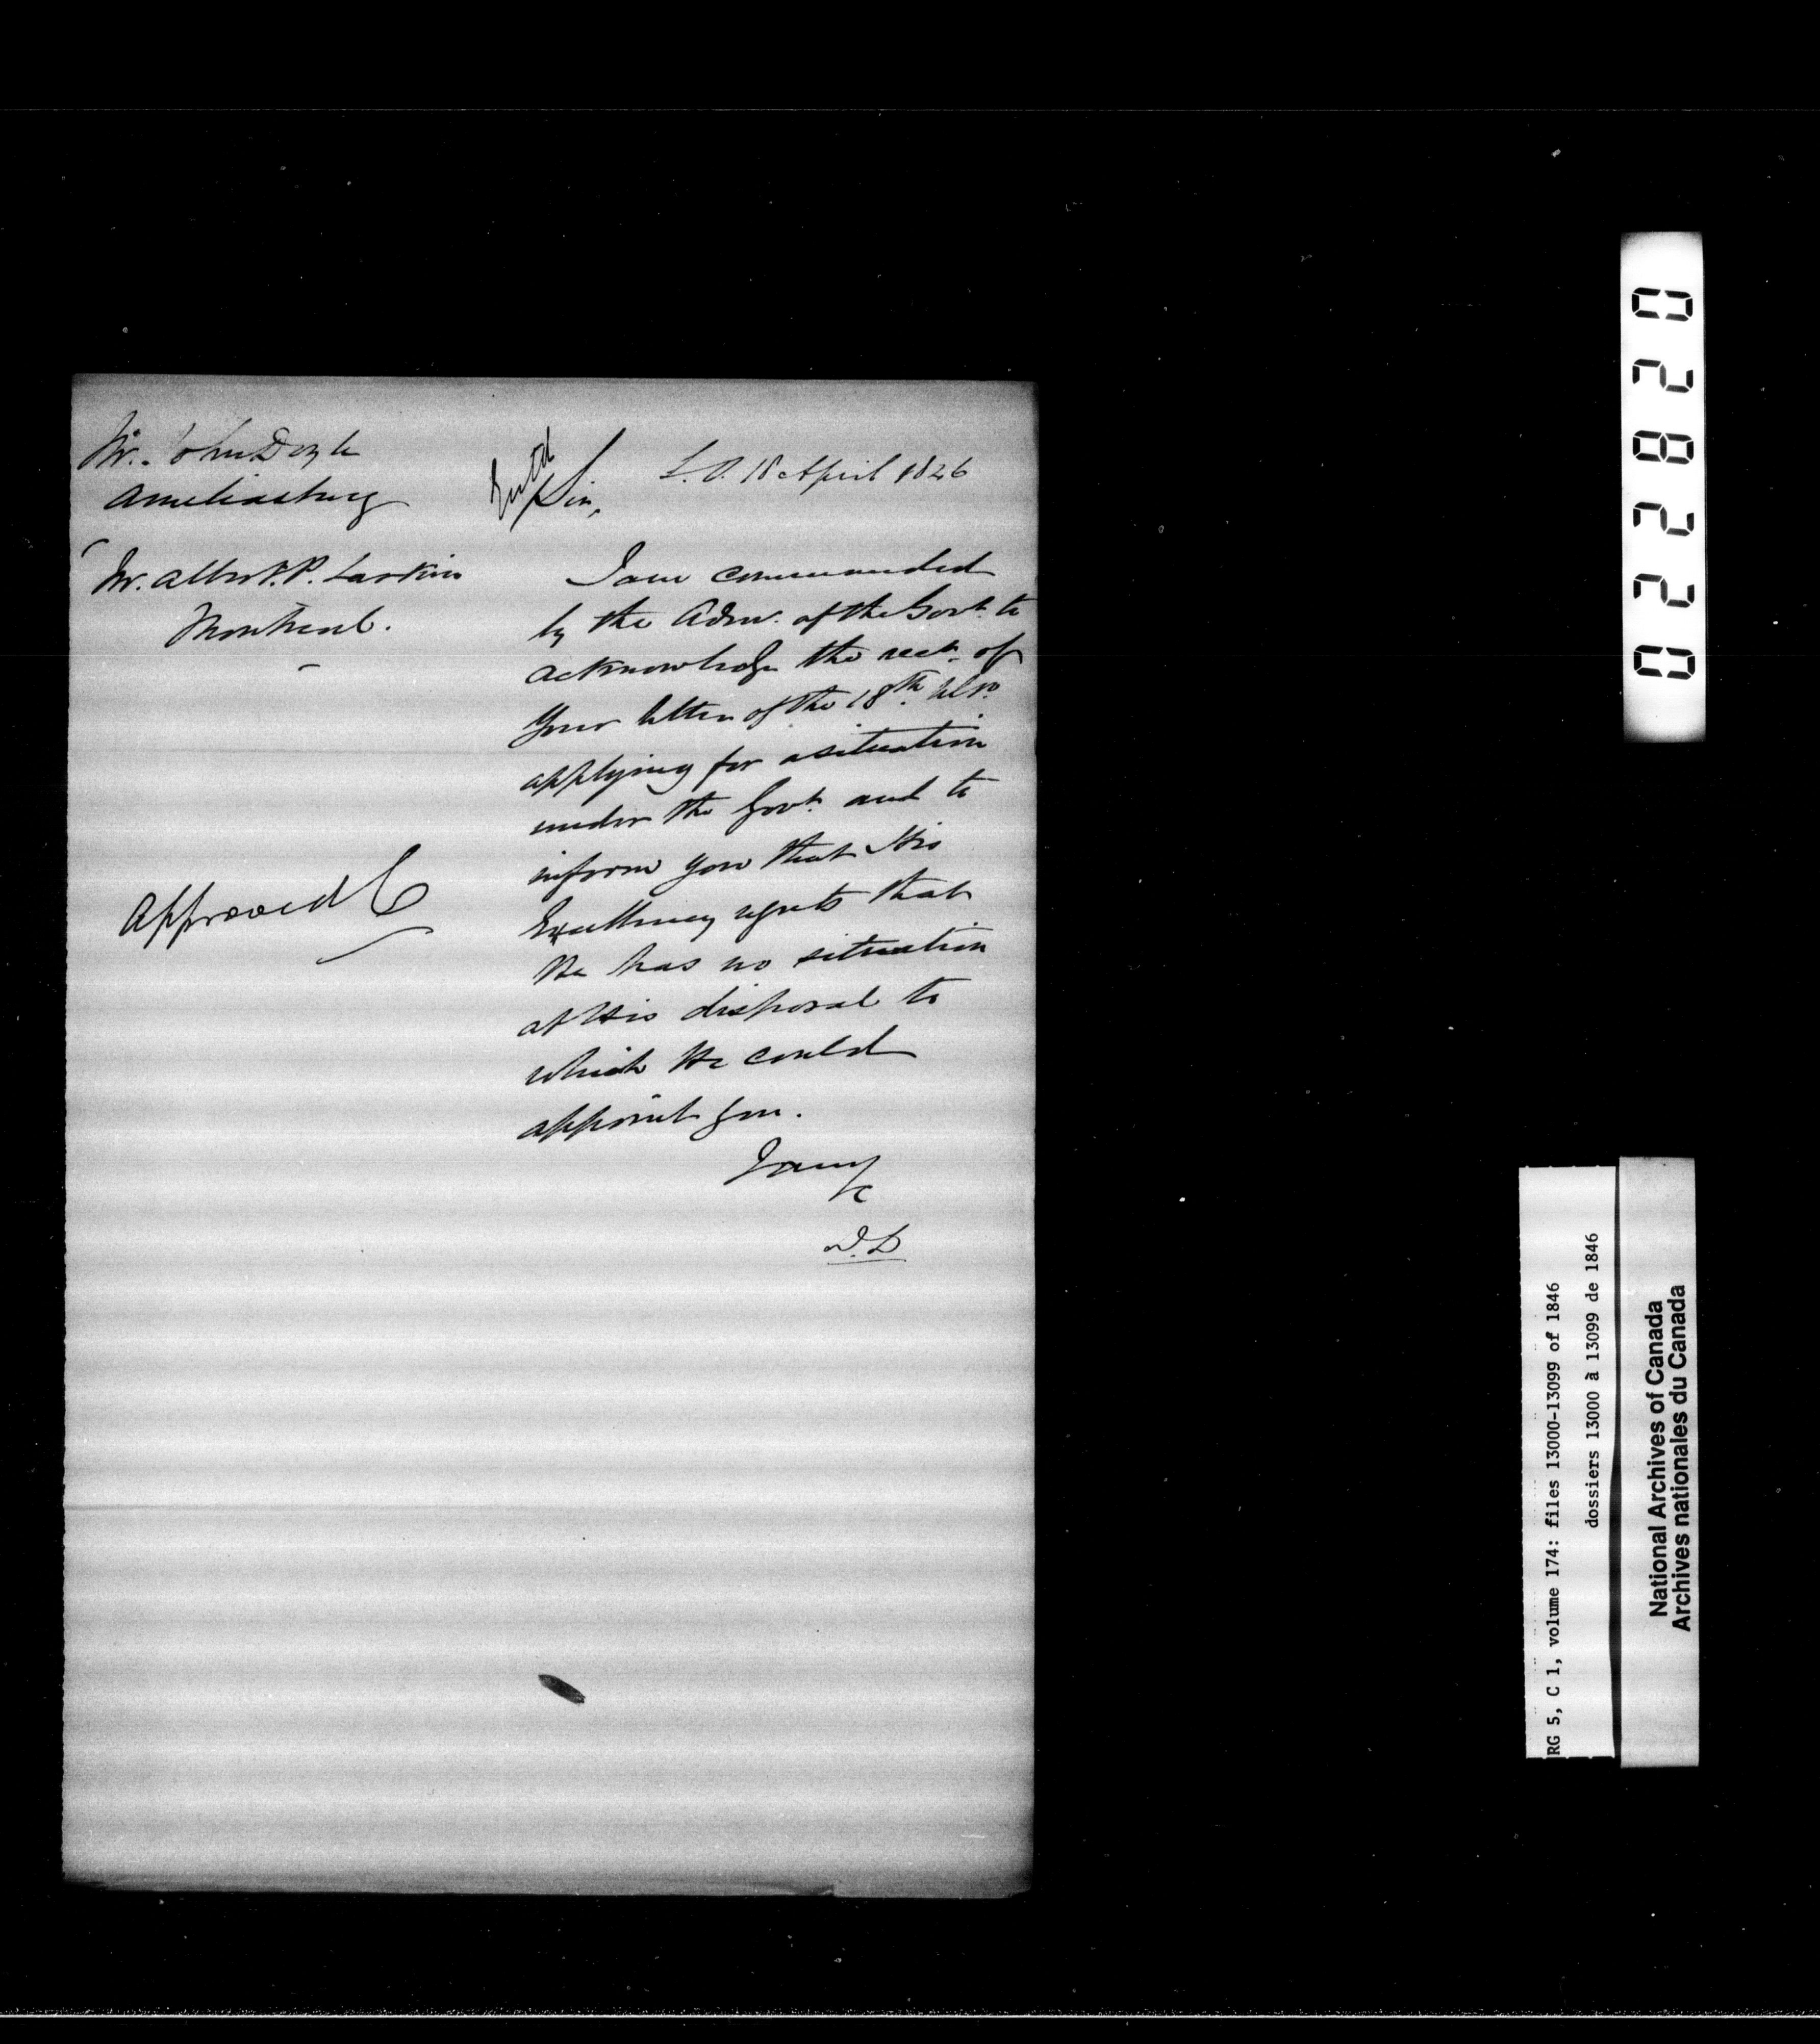 Mr. John Doyle
Ameliasburg
Mr. Albert. P. Larkin
Montreal.
Approved C
Entd
S.O. 18 April 1846
Sir,
I am commanded
by the Adm. of the Govt. to
acknowledge the rect. of
your letter of the 18th. Ulto.
applying for a situation
under the Govt. and to
inform you that His
Excellency regrets that
He has no situation
at His disposal to
which He could
appoint you.
I am &c
D.D
02820
RG 5, C 1, volume 174: files 13000-13099 of 1846
dossiers 13000 à 13099 de 1846
National Archives of Canada
Archives nationales du Canada